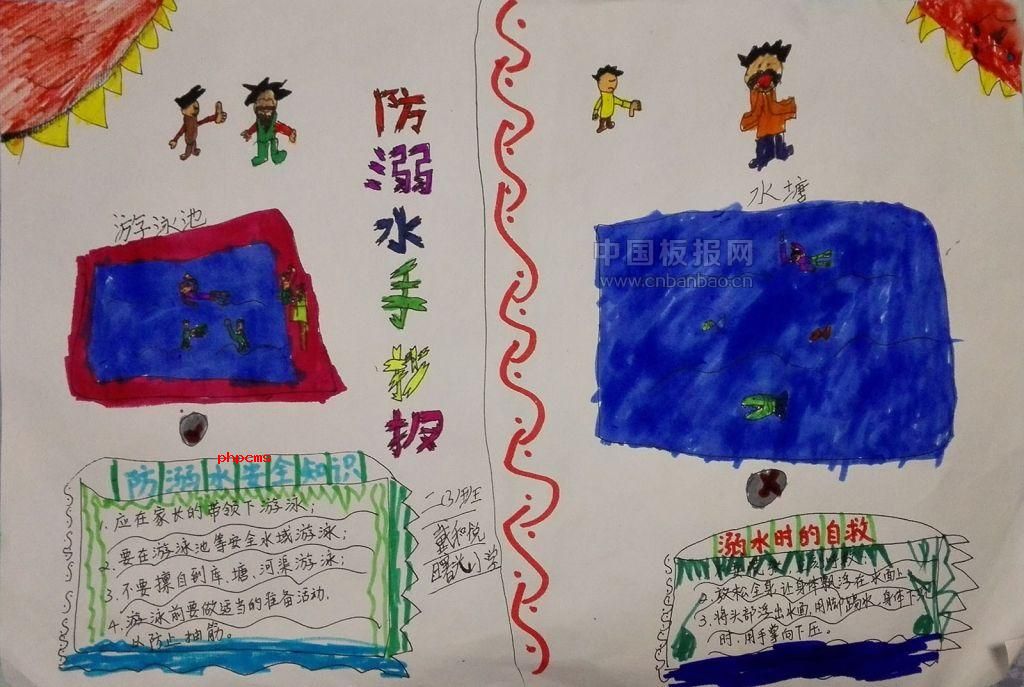 防溺水手抄报
游泳池
phpcms
防溺水安全知识
1. 应在家长的带领下游泳;
2. 要在游泳池等安全水域游泳;
3. 不要擅自到库、塘、河渠游泳;
4. 游泳前要做适当的准备活动,
以防止抽筋。
二(3)班
戴和悦
曙光小学
水塘
中国板报网
www.cnbanbao.cn
溺水时的自救
2. 放松全身,让身体飘浮在水面上
3. 将头部浮出水面,用脚踢水,身体下
时,用手掌向下压。